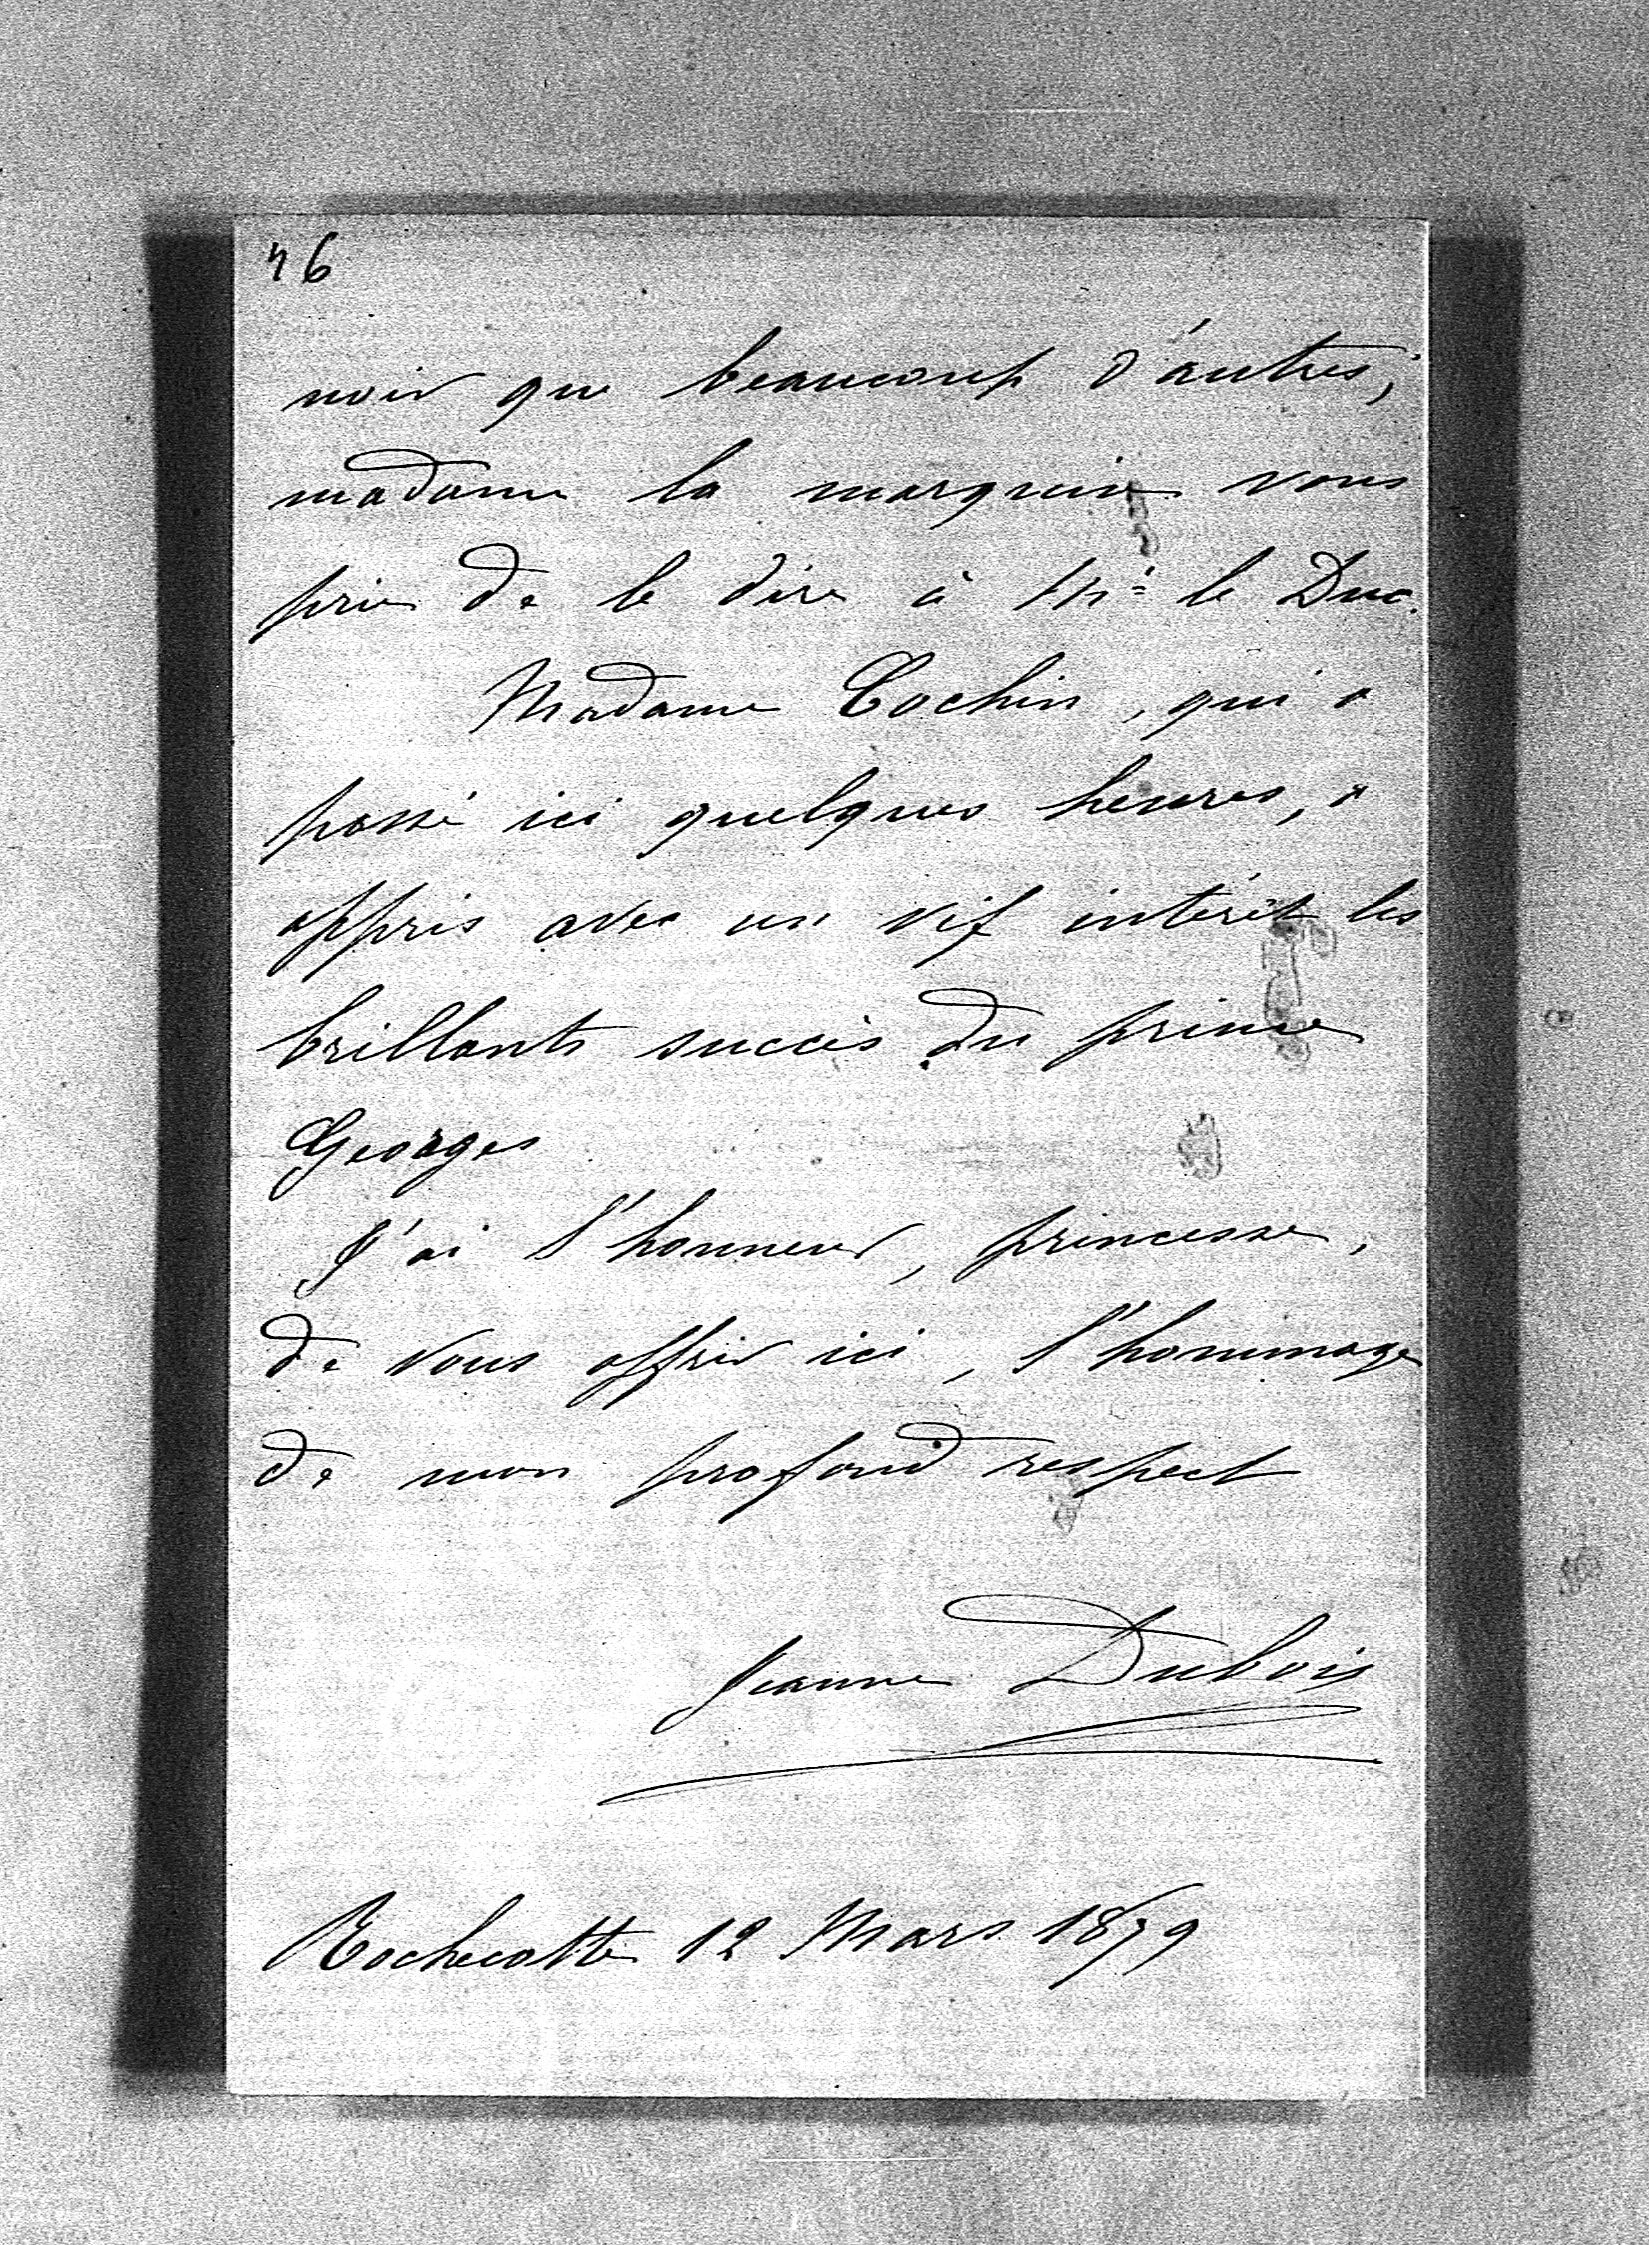 46
noir que beaucoup d'autres,
madame la marquise vous
prie de le dire à Mr le Duc.
Madame Cochin, qui a
passé ici quelques heures, a
appris avec un vif intérêt les
brillants succès du prince
Georges
J'ai l'honneur, princesse,
de vous offrir ici, l'hommage
de mon profond respect
Jeanne Dubois
Rochecotte 12 Mars 1879